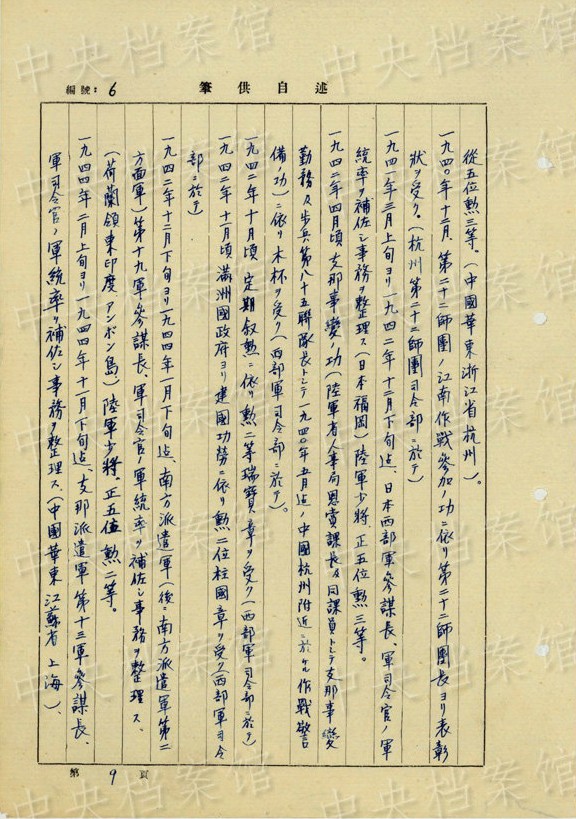 中央档案馆
編號: 6
筆供自述
從五位勲三等。(中國華東浙江省杭州)。
一九四〇年十二月、第二十二師團ノ江南作戰參加ノ功ニ依リ第二十二師團長ヨリ表彰
狀ヲ受ク。(杭州第二十二師團司令部ニ於テ)
一九四一年三月上旬ヨリ一九四二年十二月下旬迠、日本西部軍參謀長、軍司令官ノ軍
統率ヲ補佐シ事務ヲ整理ス(日本福岡)陸軍少將、正五位勲三等。
一九四二年四月頃支那事變ノ功(陸軍省人事局恩賞課長及同課員トシテ支那事變
勤務及步兵第八十五聯隊長トシテ一九四〇年五月迠ノ中國杭州附近ニ於ケル作戰警
備ノ功)ニ依リ木杯ヲ受ク(西部軍司令部ニ於テ)。
一九四二年十月頃定期敘勲ニ依リ勲二等瑞寶章ヲ受ク(西部軍司令部ニ於テ)
一九四二年十一月頃滿洲國政府ヨリ建國功勞ニ依リ勲二位柱國章ヲ受ク(西部軍司令
部ニ於テ)
一九四二年十二月下旬ヨリ一九四四年一月下旬迠、南方派遣軍(後ニ南方派遣軍第二
方面軍)第十九軍參謀長、軍司令官ノ軍統率ヲ補佐シ事務ヲ整理ス、
(荷蘭領東印度アンボン島)陸軍少將。正五位勲二等。
一九四四年二月上旬ヨリ一九四四年十一月下旬迠、支那派遣軍第十三軍參謀長、
軍司令官ノ軍統率ヲ補佐シ事務ヲ整理ス、(中國華東江蘇省上海)、
第 9 頁